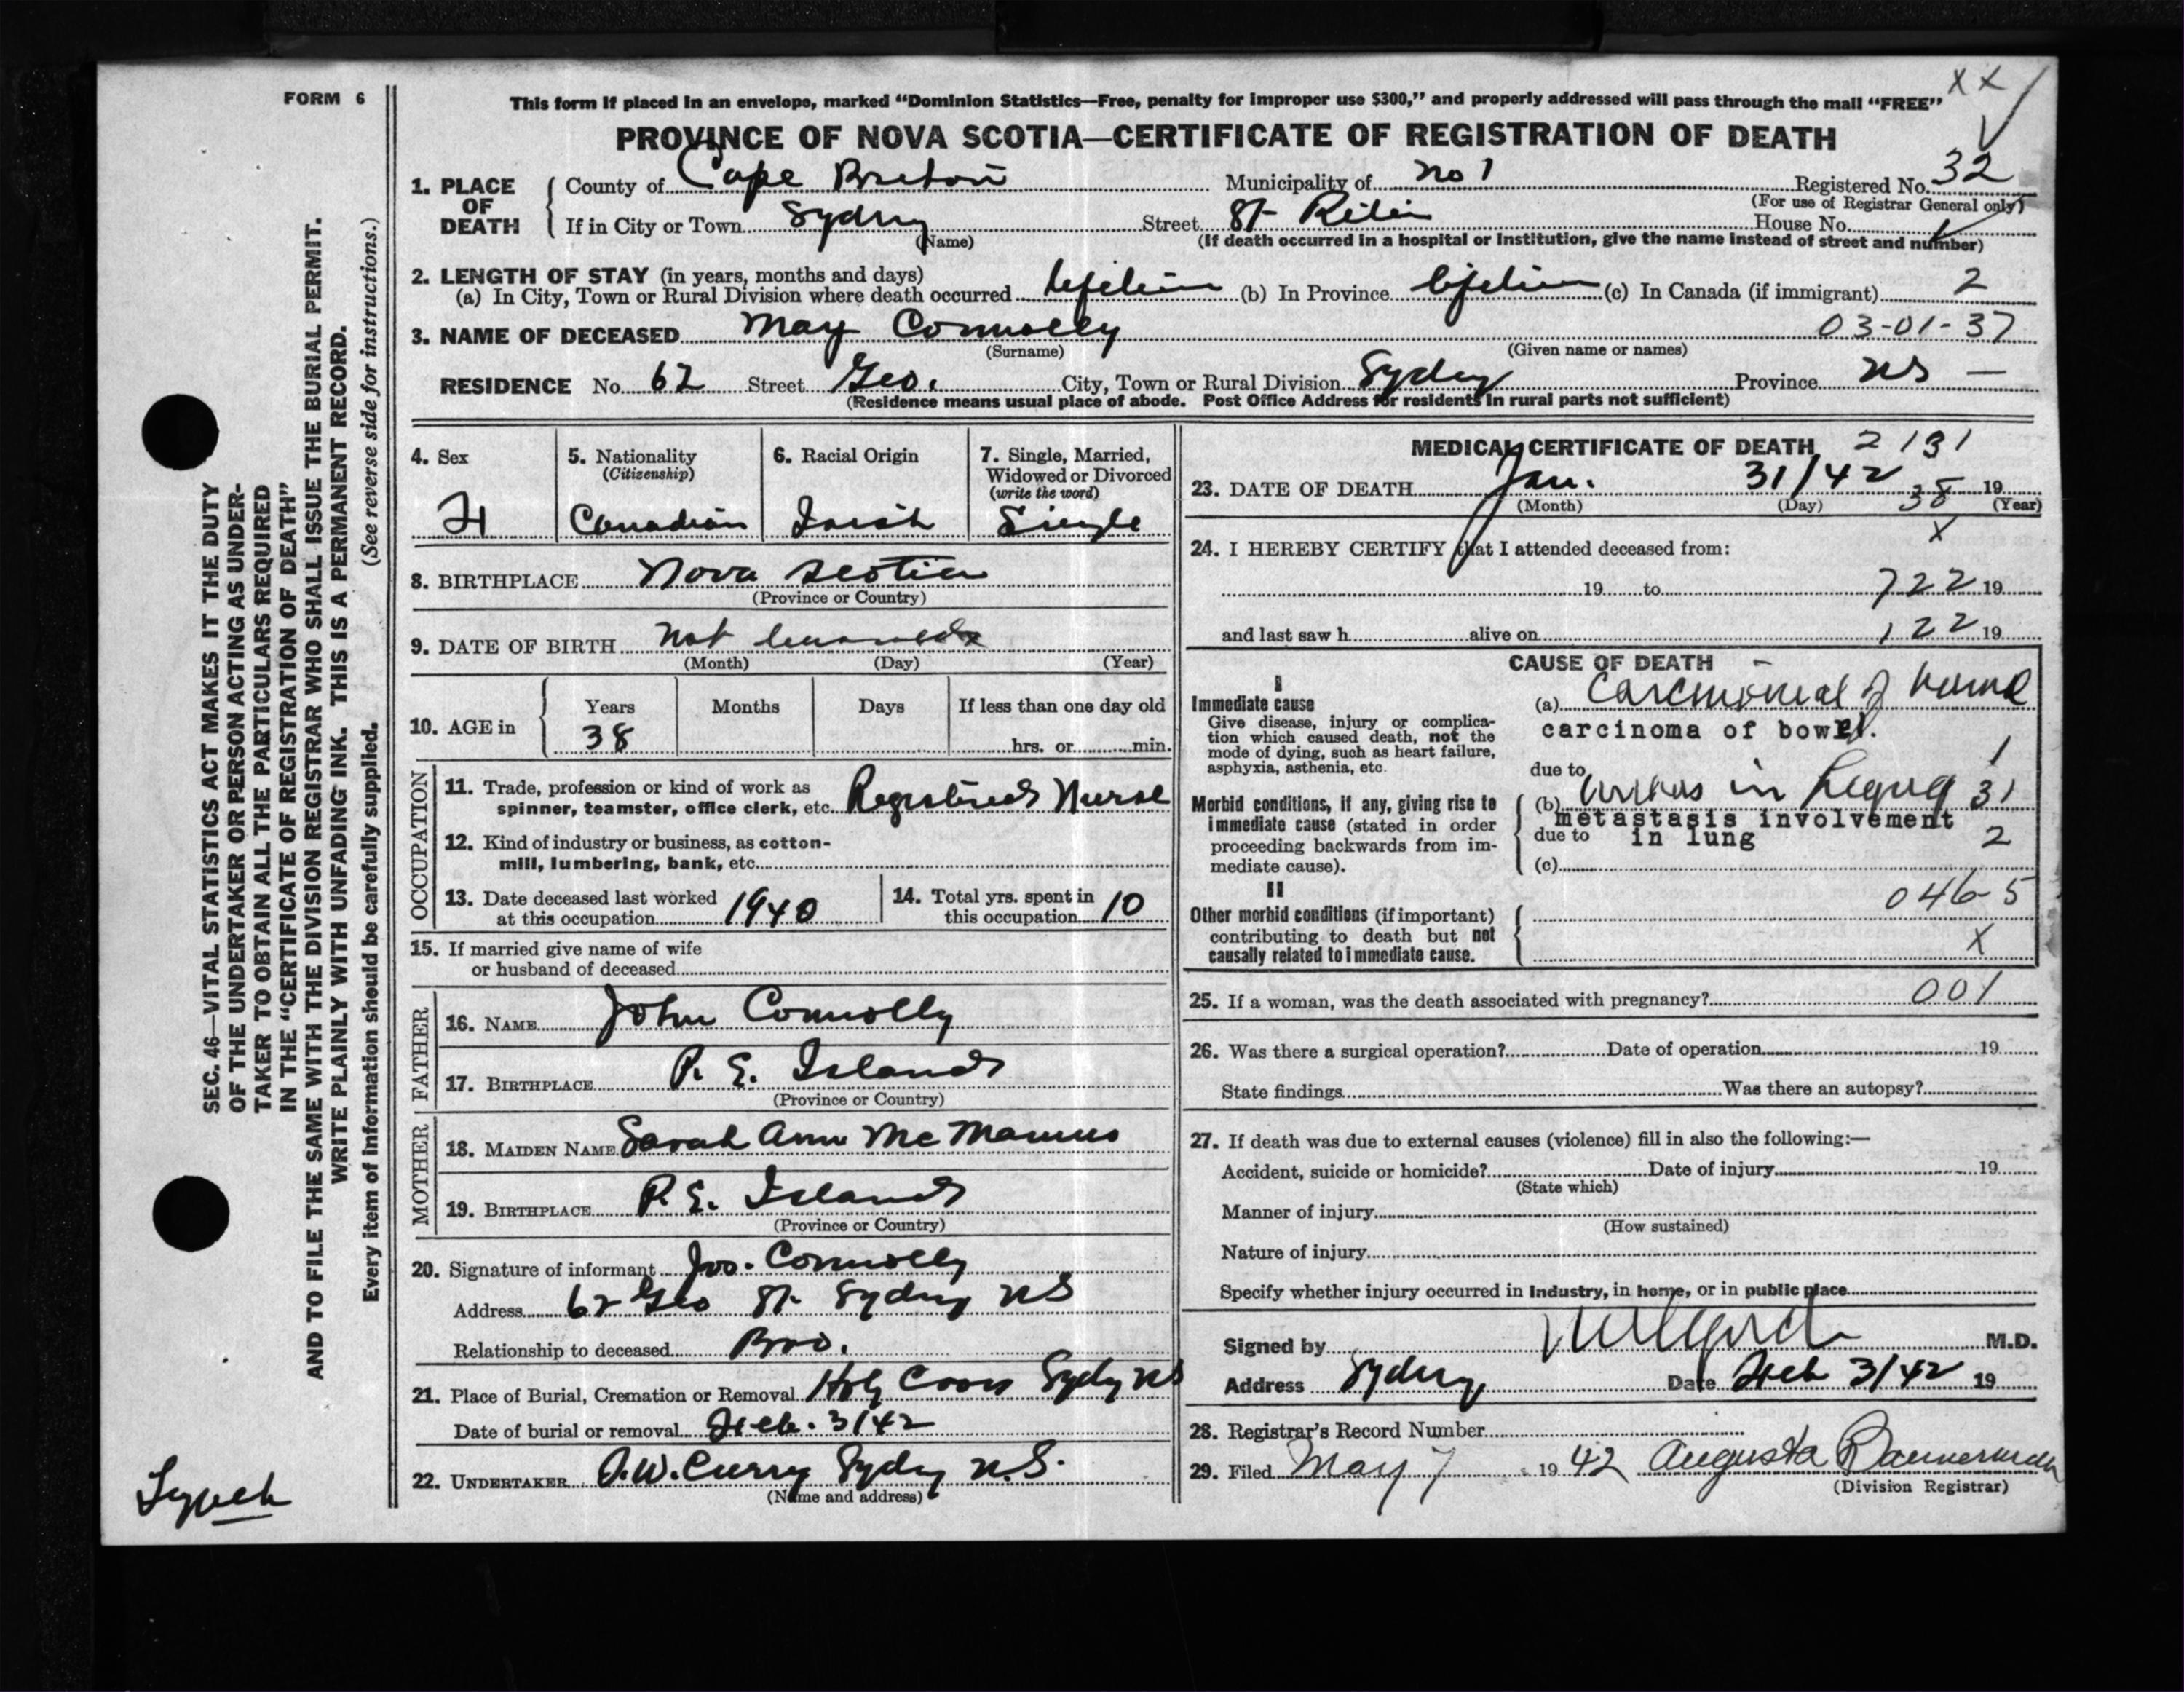 FORM 6
This form if placed in an envelope, marked "Dominion Statistics—Free, penalty for improper use $300," and properly addressed will pass through the mail "FREE"
XX
PROVINCE OF NOVA SCOTIA—CERTIFICATE OF REGISTRATION OF DEATH
1. PLACE OF DEATH
County of Cape Breton Municipality of no 1 Registered No. 32
(For use of Registrar General only)
If in City or Town Sydney Street St Rita House No.
(Name) (If death occurred in a hospital or institution, give the name instead of street and number)
2. LENGTH OF STAY (in years, months and days)
(a) In City, Town or Rural Division where death occurred lifetime (b) In Province lifetime (c) In Canada (if immigrant) 2
3. NAME OF DECEASED May Connolly 03-01-37
(Surname) (Given name or names)
RESIDENCE No. 62 Street Geo. City, Town or Rural Division Sydney Province NS —
(Residence means usual place of abode. Post Office Address for residents in rural parts not sufficient)
4. Sex
F
5. Nationality
(Citizenship)
Canadian
6. Racial Origin
Irish
7. Single, Married, Widowed or Divorced
(write the word)
Single
8. BIRTHPLACE Nova Scotia
(Province or Country)
9. DATE OF BIRTH Not
(Month) (Day) (Year)
10. AGE in Years Months Days If less than one day old
38 hrs. or min.
OCCUPATION
11. Trade, profession or kind of work as
spinner, teamster, office clerk, etc. Registered Nurse
12. Kind of industry or business, as cotton-
mill, lumbering, bank, etc.
13. Date deceased last worked
at this occupation 1940
14. Total yrs. spent in
this occupation 10
15. If married give name of wife
or husband of deceased
FATHER
16. NAME John Connolly
17. BIRTHPLACE P. E. Island
(Province or Country)
MOTHER
18. MAIDEN NAME Sarah Ann McManus
19. BIRTHPLACE P. E. Island
(Province or Country)
20. Signature of informant Jos. Connolly
Address 62 Geo St Sydney NS
Relationship to deceased Bro.
21. Place of Burial, Cremation or Removal Holy Cross Sydney NS
Date of burial or removal Feb. 3/42
22. UNDERTAKER A.W. Curry Sydney N.S.
(Name and address)
MEDICAL CERTIFICATE OF DEATH 2131
23. DATE OF DEATH Jan. 31/42 38 19
(Month) (Day) (Year)
X
24. I HEREBY CERTIFY that I attended deceased from:
19 to 722 19
and last saw h alive on 122 19
CAUSE OF DEATH
I
Immediate cause
Give disease, injury or complica-
tion which caused death, not the
mode of dying, such as heart failure,
asphyxia, asthenia, etc.
(a)
carcinoma of bowel.
due to 1
Morbid conditions, if any, giving rise to
immediate cause (stated in order
proceeding backwards from im-
mediate cause).
(b) 31
metastasis involvement
due to in lung 2
(c)
II
Other morbid conditions (if important)
contributing to death but not
causally related to immediate cause.
046-5
X
25. If a woman, was the death associated with pregnancy? 001
26. Was there a surgical operation? Date of operation 19
State findings Was there an autopsy?
27. If death was due to external causes (violence) fill in also the following:—
Accident, suicide or homicide? Date of injury 19
(State which)
Manner of injury
(How sustained)
Nature of injury
Specify whether injury occurred in industry, in home, or in public place
Signed by M.D.
Address Sydney Date Feb 3/42 19
28. Registrar's Record Number
29. Filed May 7 19 42 Augusta Bannerman
(Division Registrar)
SEC. 46—VITAL STATISTICS ACT MAKES IT THE DUTY
OF THE UNDERTAKER OR PERSON ACTING AS UNDER-
TAKER TO OBTAIN ALL THE PARTICULARS REQUIRED
IN THE "CERTIFICATE OF REGISTRATION OF DEATH"
AND TO FILE THE SAME WITH THE DIVISION REGISTRAR WHO SHALL ISSUE THE BURIAL PERMIT.
WRITE PLAINLY WITH UNFADING INK. THIS IS A PERMANENT RECORD.
Every item of information should be carefully supplied. (See reverse side for instructions.)
Lynch